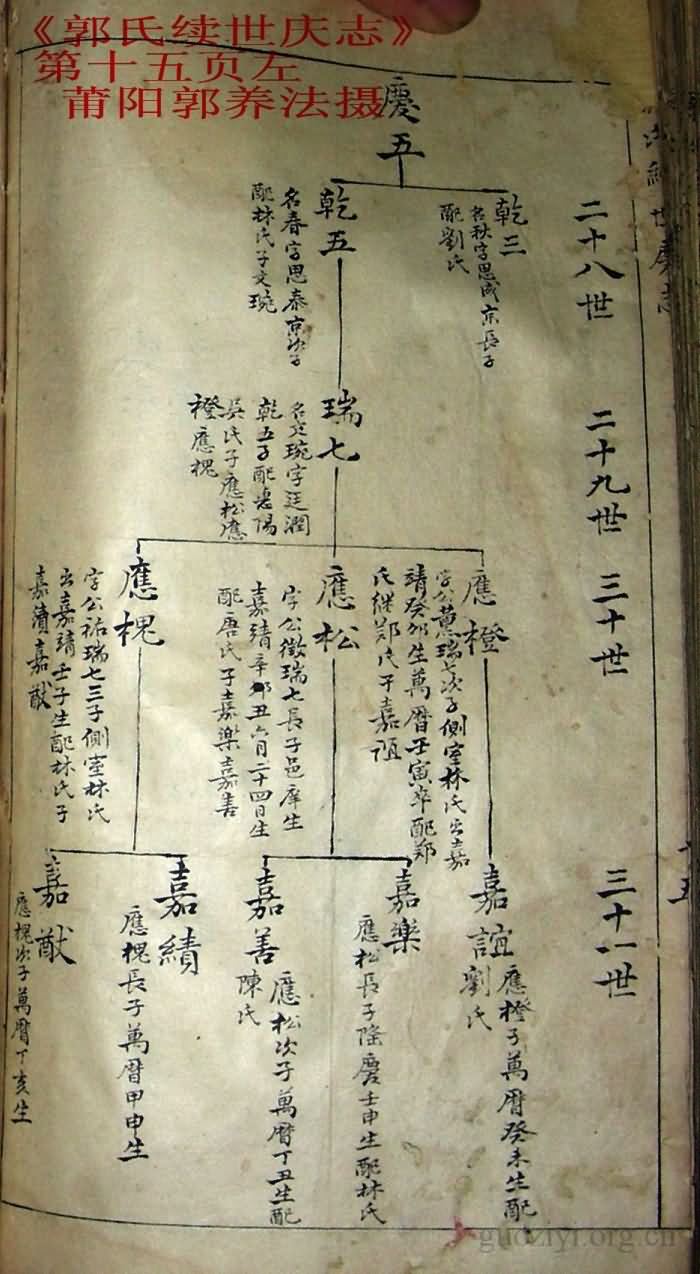 《郭氏续世庆志》
第十五页左
莆阳郭养法摄
慶五
二十八世
乾三
名秋字思成京長子
配劉氏
乾五
名春字思泰京次子
配林氏子文琬
二十九世
瑞七
名文琬字廷潤
乾五子配莆陽
吳氏子應松應
橙應槐
三十世
應橙
字公蕙瑞七次子側室林氏出嘉
靖癸卯生萬曆壬寅卒配鄭
氏継鄭氏子嘉誼
應松
字公徵瑞七長子邑庠生
嘉靖辛丑六月二十四日生
配唐氏子嘉樂嘉善
應槐
字公祐瑞七三子側室林氏
出嘉靖壬子生配林氏子
嘉績嘉猷
三十一世
嘉誼
應橙子萬曆癸未生配
劉氏
嘉樂
應松長子隆慶壬申生配林氏
嘉善
應松次子萬曆丁丑生配
陳氏
嘉績
應槐長子萬曆甲申生
嘉猷
應槐次子萬曆丁亥生
guoziyi.org.cn